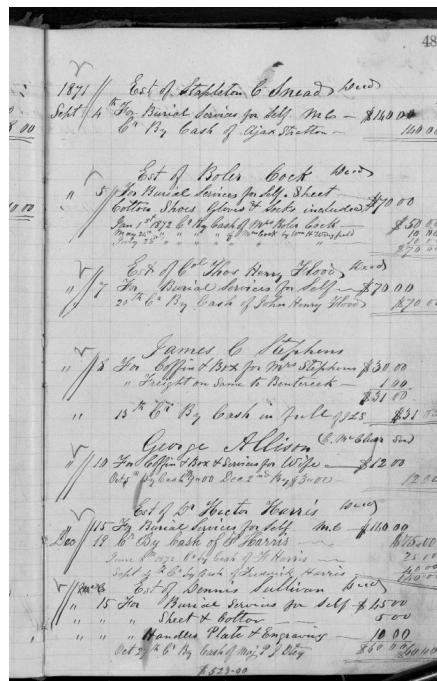 48
1871 Est of Stapleton C Snead Decd
Sept 4th For Burial Services for Self M.C — $140 00
Cr By Cash of Ajax Stratton — 140 00
Est of Boler Cock Decd
" 5 For Burial Services for Self. Sheet
Cotton, Shoes Gloves & Socks included $70 00
Jan 1st 1872 Cr By Cash of Mrs Boler Cock $50 00
May 24th " " " " of Mrs Cock by Wm H Wingfield 10 00
July 25th " " " " " 10 00
$70 00
Est of Col Thos Henry Flood Decd
" 7 For Burial Services for Self — $70.00
20th Cr By Cash of John Henry Flood $70 00
James C Stephens
" 8 For Coffin & Box for Mrs Stephens $30 00
" Freight on Same to Bentcreek — 1 00
$31 00
" 13th Cr By Cash in full $31 00
George Allison
" 10 For Coffin & Box & Services for Wife — $12 00
Oct 5th By Cash $9.00 Dec 2nd By $3.00 — 12 00
Est of Dr Hector Harris Decd
" 15 For Burial Services for Self M.C — $140 00
Dec 19 Cr By Cash of Harris —
June 1872 Cr by Cash of Harris 25 00
Sept Cr by Cash of Frederick Harris — 40 00
$140 00
Est of Dennis Sullivan Decd
" 15 For Burial Services for Self $45 00
" " Sheet & Cotton — 5 00
" " Handles Plate & Engraving — 10 00
Oct 27th Cr By Cash of Maj P J Otey $60 00 $60 00
$523.00
8 00